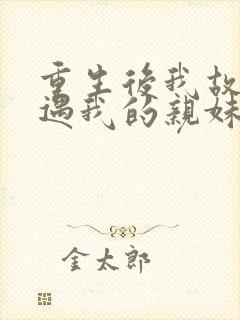 重生後我放
過我的親妹
金太郎